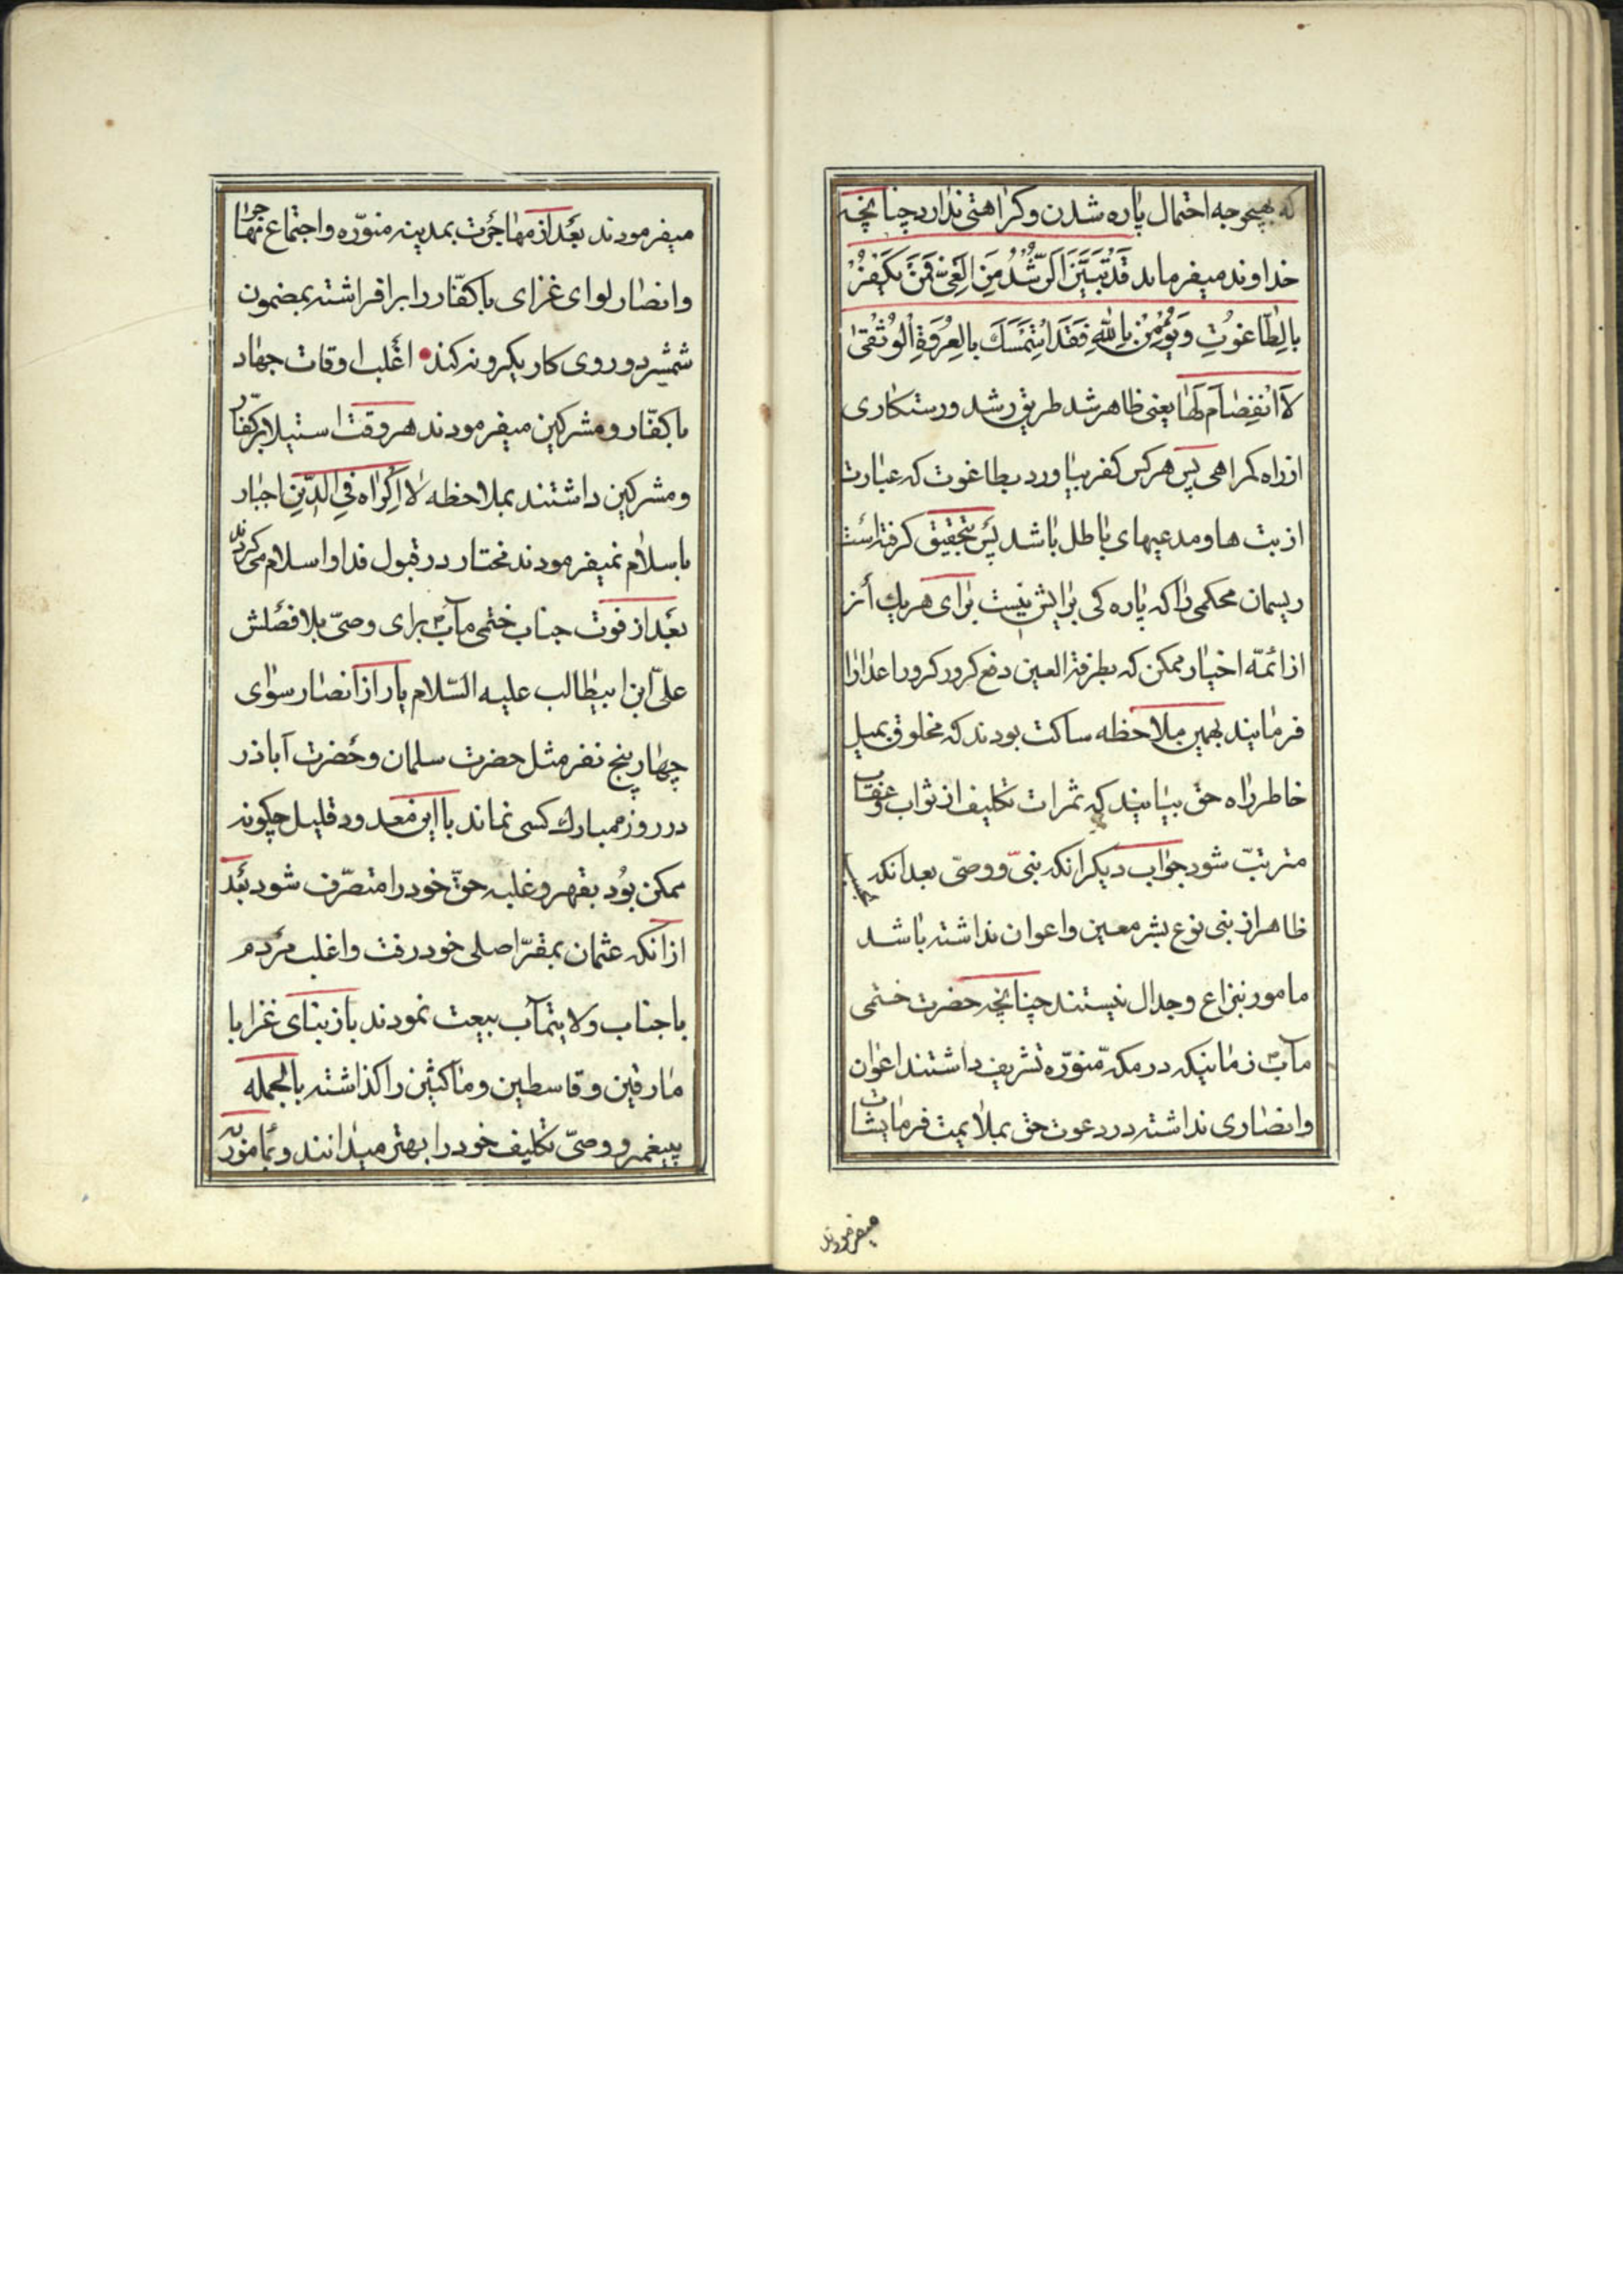 که بهیچوجه احتمال پاره شدن و کراهتی ندارد چنانچه
خداوند میفرماید قَدْ تَبَیَّنَ الرُّشْدُ مِنَ الْغَیِّ فَمَنْ یَکْفُرْ
بِالطّاغُوتِ وَیُؤْمِنْ بِاللهِ فَقَدِ اسْتَمْسَكَ بِالْعُرْوَةِ الْوُثْقیٰ
لَا انْفِصٰامَ لَهٰا یعنی ظاهر شد طریق رشد و رستکاری
از راه کمراهی پس هرکس کفر بیاورد بطاغوت که عبارت
از بت ها و مدعیهای باطل باشد پس بتحقیق کرفته است
ریسمان محکمی را که پاره کی برایش نیست برای هریك از
از ائمّه اخیار ممکن که بطرفة العین دفع کرور کرور اعدا را
فرمایند بهمین ملاحظه ساکت بودند که مخلوق بمیل
خاطر راه حق بیایند که ثمرات تکلیف از ثواب و عقاب
مترتبّ شود جواب دیکر انکه نبیّ و وصیّ بعد انکه
ظاهر از بنی نوع بشر معین و اعوان نداشته باشد
مامور بنزاع وجدال نیستند چنانچه حضرت ختمی
مآب ص زمانیکه در مکهّ منوّره تشریف داشتند اعوان
وانصاری نداشته در دعوت حق بملایمت فرمایشات
میفرمودند
میفرمودند بعد از مهاجرت بمدینه منوّره و اجتماع مهاجر
وانصار لوای غزای با کفّار را بر افراشته بمضمون
شمشیر دوروی کار یکرو نه کند اغلب اوقات جهاد
با کفّار و مشرکین میفرمودند هر وقت استیلا بر کفّار
و مشرکین داشتند بملاحظه لٰا اِکْرٰاه فِی الدّینِ اجبار
باسلام نمیفرمودند مختار در قبول فدا و اسلام می کردند
بعد از فوت جناب ختمی مآب ص برای وصیّ بلا فصلش
علیّ ابن ابیطالب علیه السّلام یار از انصار سوای
چهار پنج نفر مثل حضرت سلمان و حضرت آباذر
در روز مبارك کسی نماند با این معدود قلیل چکونه
ممکن بود بقهر و غلبه حقّ خود را متصرّف شود بعد
از انکه عثمان بمقرّ اصلی خود رفت و اغلب مردم
با جناب ولایتمآب بیعت نمودند باز بنای غزا با
مارقین و قاسطین و ماکثین را کذاشته بالجمله
پیغمبر و وصیّ تکلیف خود را بهتر میدانند و بمامورٌبه